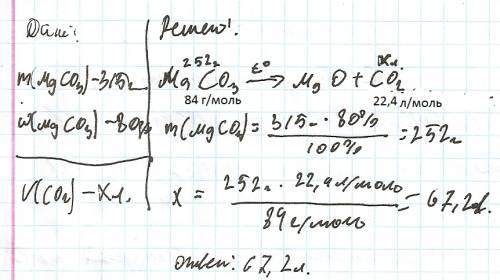 Дано:
m(MgCO3)-315г
w(MgCO3)-80%
V(CO2)-Xл.
Решение:
252г Xл.
MgCO3 t° → MgO + CO2
84 г/моль 22,4 л/моль
m(MgCO3) = 315г · 80% / 100% = 252г
x = 252г · 22,4л/моль / 84г/моль = 67,2л.
ответ: 67,2л.